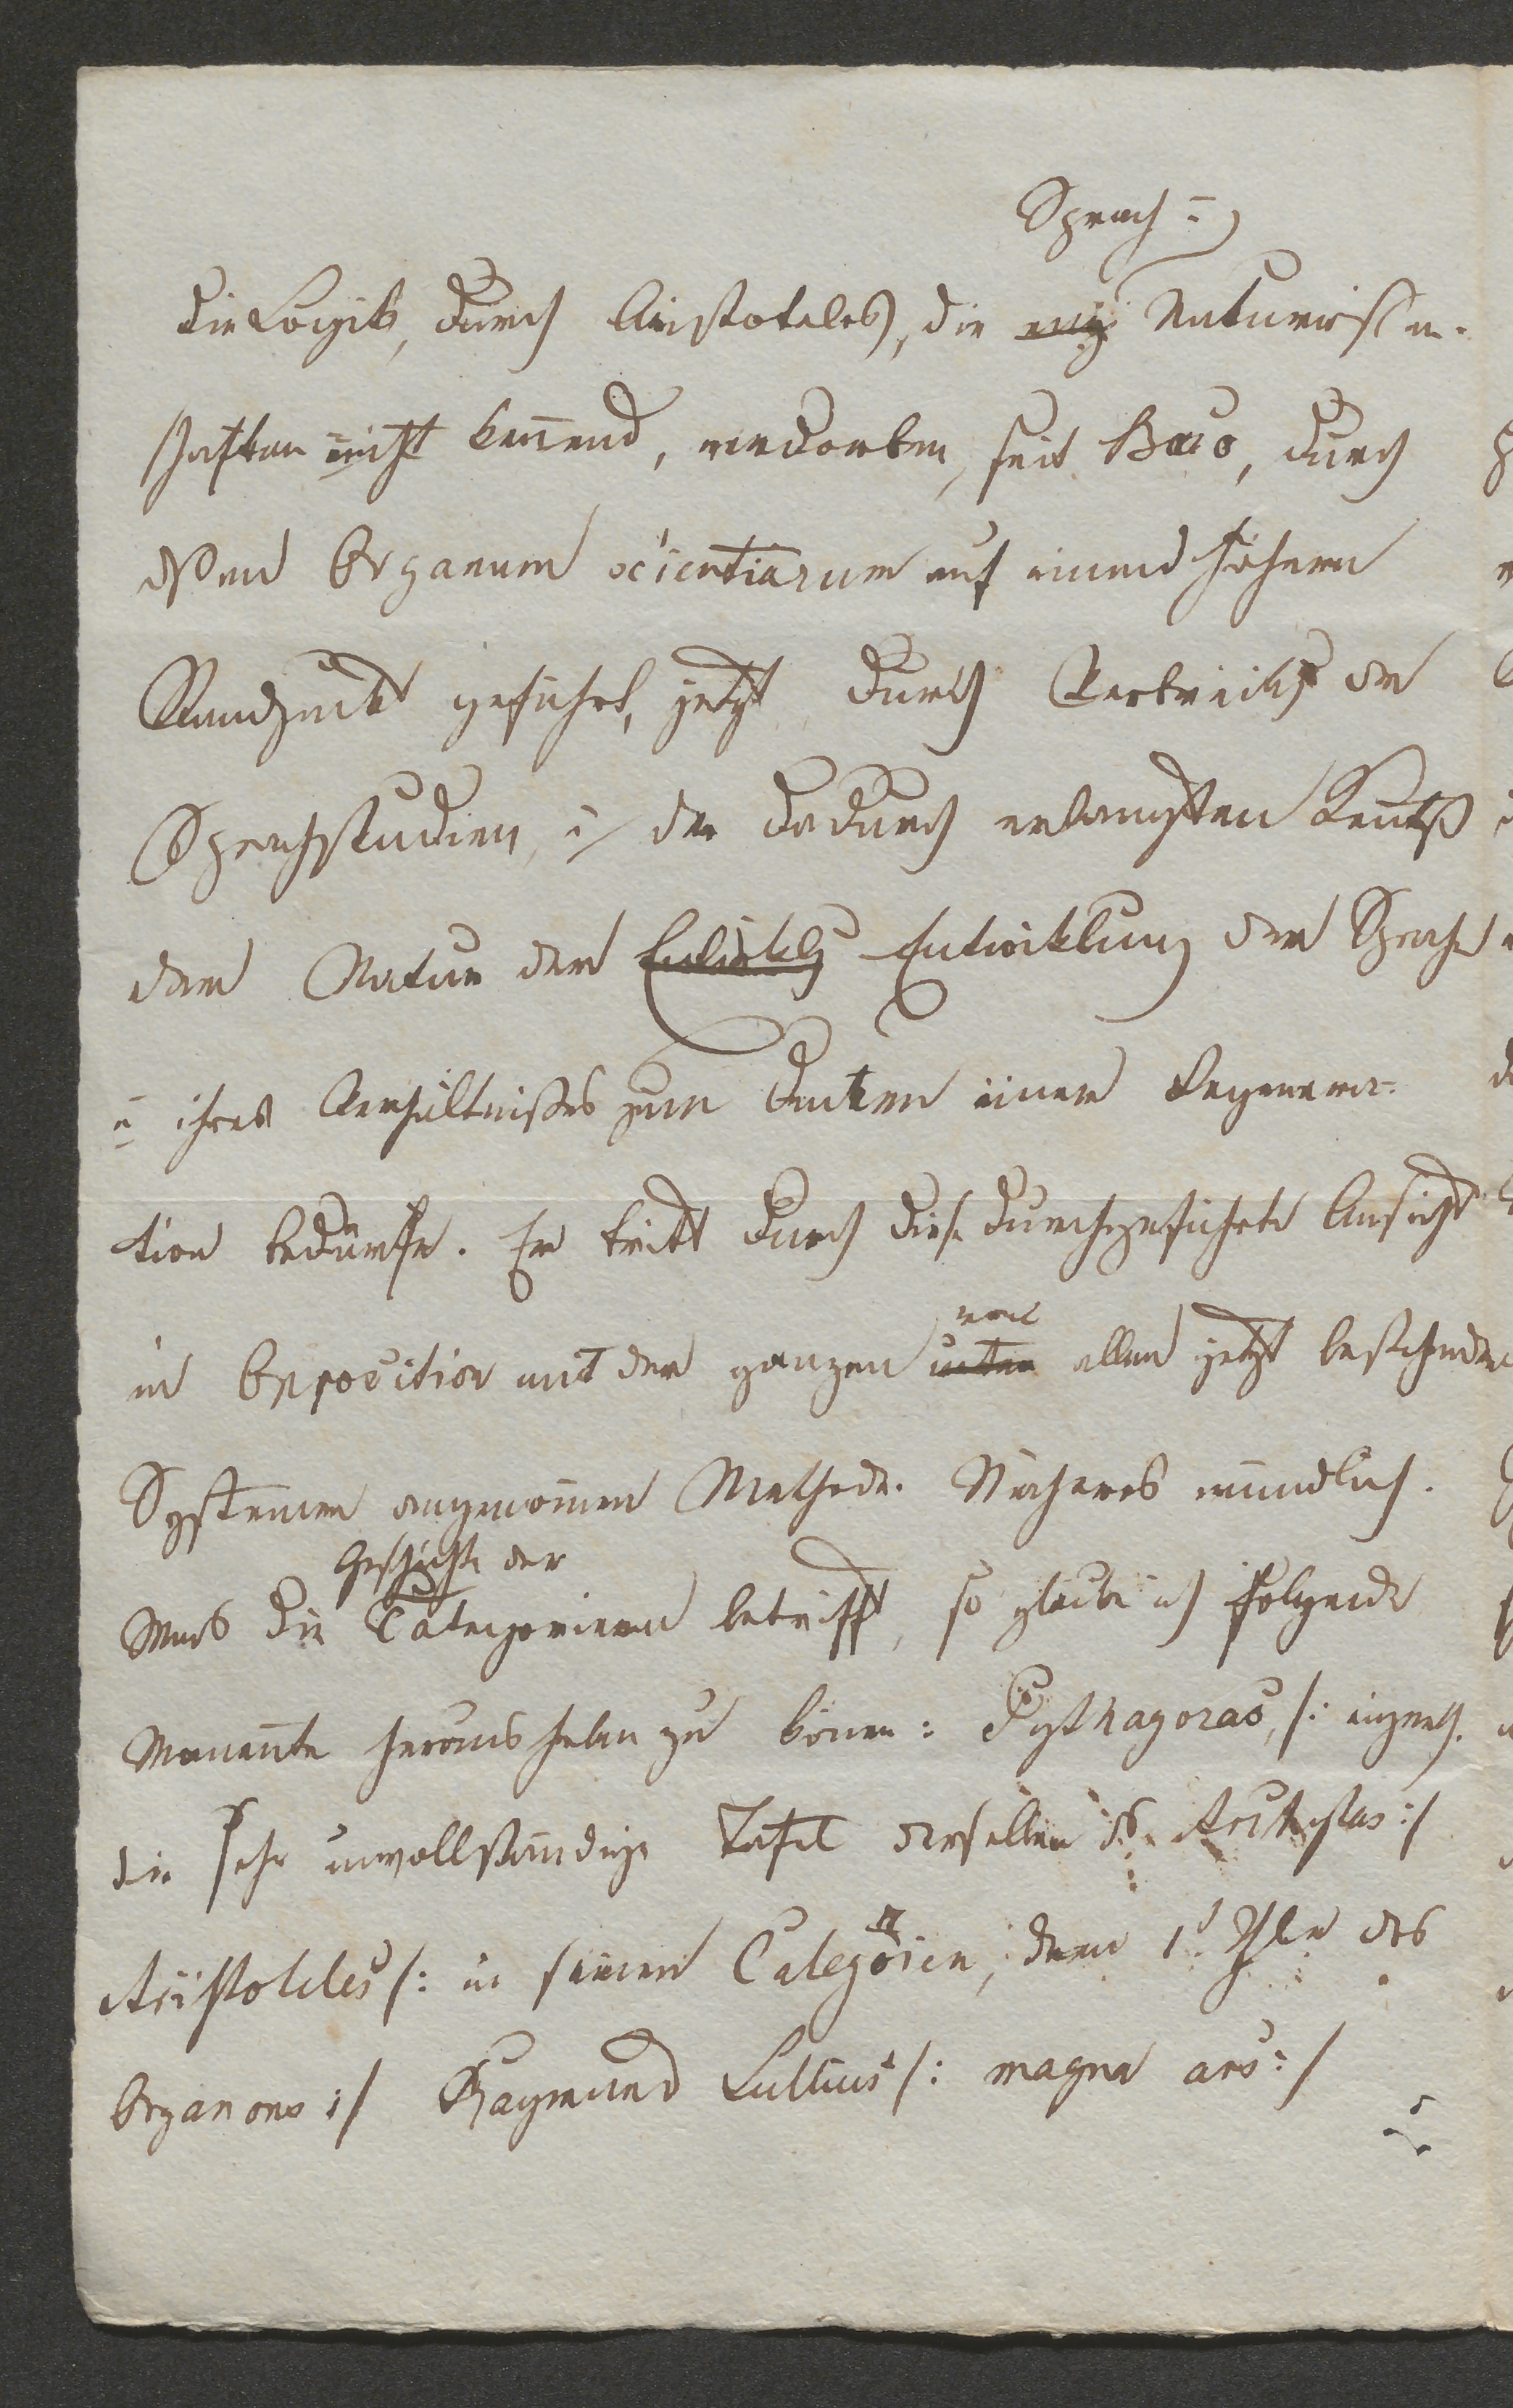 Sprach=
die Logik, durch Aristoteles, die Naturwißen-
schaften nicht kennend, verdorben, seit Baco, durch
dßen Organum scientiarum auf einen höhern
Standpunkt geführt, jetzt durch der
Sprachstudien, u der dadurch erlangten Kentniß
der Natur der Entwicklg Entwicklung der Sprache
u ihres Verhältnißes zum Denken einer Regenera-
tion bedürfe. Er tritt durch diese durchgeführte Ansicht
in Opposition mit der ganzen unter allen jetzt bestehenden
Systemen angenommen Methode. Näheres mündlich.
Geschichte der
Was die Categorieen betrifft, so glaube ich folgende
Momente herausheben zu können: Pythagoras, /:
die sehr unvollständige Tafel derselben Archytas:/
Aristoteles /: in seinen Categorien, dem 1. Thle des
Organons :/ Raymund Lullius /: magna ars :/